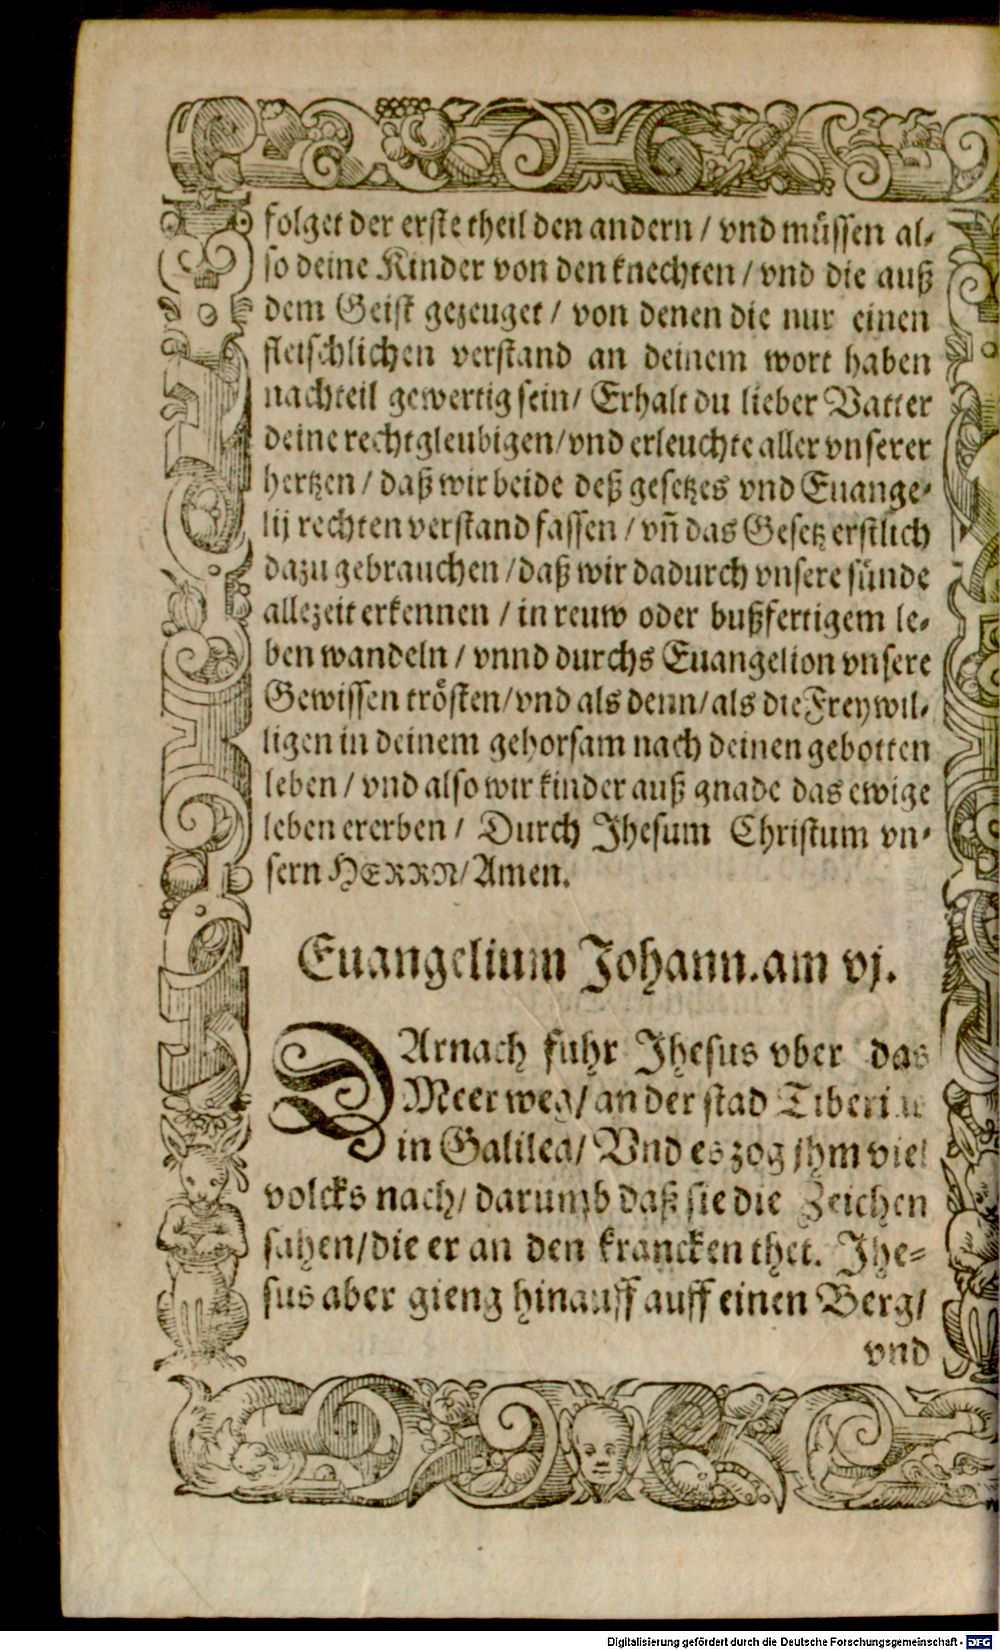 folget der erste theil den andern / vnd müssen al-
so deine Kinder von den knechten / vnd die auß
dem Geist gezeuget / von denen die nur einen
fleischlichen verstand an deinem wort haben
nachteil gewertig sein / Erhalt du lieber Vatter
deine rechtgleubigen / vnd erleuchte aller vnserer
hertzen / daß wir beide deß gesetzes vnd Euange-
lij rechten verstand fassen / vñ das Gesetz erstlich
dazu gebrauchen / daß wir dadurch vnsere sünde
allezeit erkennen / in reuw oder bußfertigem le-
ben wandeln / vnnd durchs Euangelion vnsere
Gewissen trösten / vnd als denn / als die Freywil-
ligen in deinem gehorsam nach deinen gebotten
leben / vnd also wir kinder auß gnade das ewige
leben ererben / Durch Jhesum Christum vn-
sern HERRN / Amen.
Euangelium Johann. am vj.
DArnach fuhr Jhesus vber das
Meer weg / an der stad Tiberias
in Galilea / Vnd es zog jhm viel
volcks nach / darumb daß sie die Zeichen
sahen / die er an den krancken thet. Jhe-
sus aber gieng hinauff auff einen Berg /
vnd
Digitalisierung gefördert durch die Deutsche Forschungsgemeinschaft - DFG